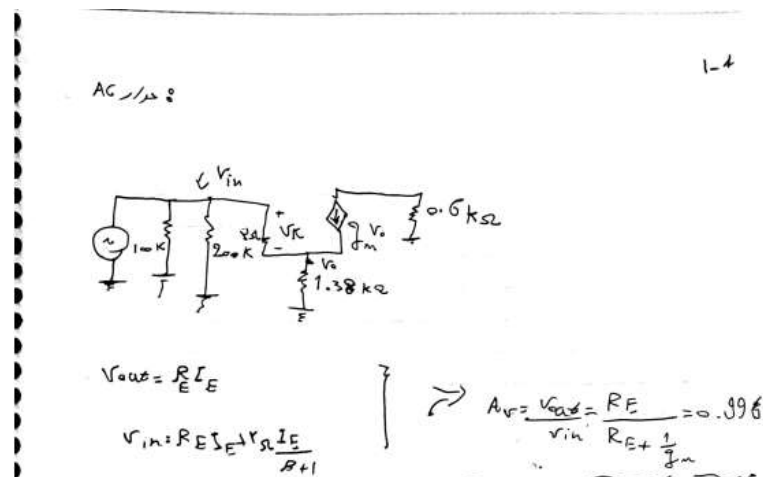 1-4
مدار AC :
Vin
100K
200K
rπ
+
Vπ
-
gm Vπ
0.6 kΩ
Vo
1.38 kΩ
Vout = RE IE
Vin = RE IE + rπ IE/β+1
Av = Vout/Vin = RE/RE + 1/gm = 0.996